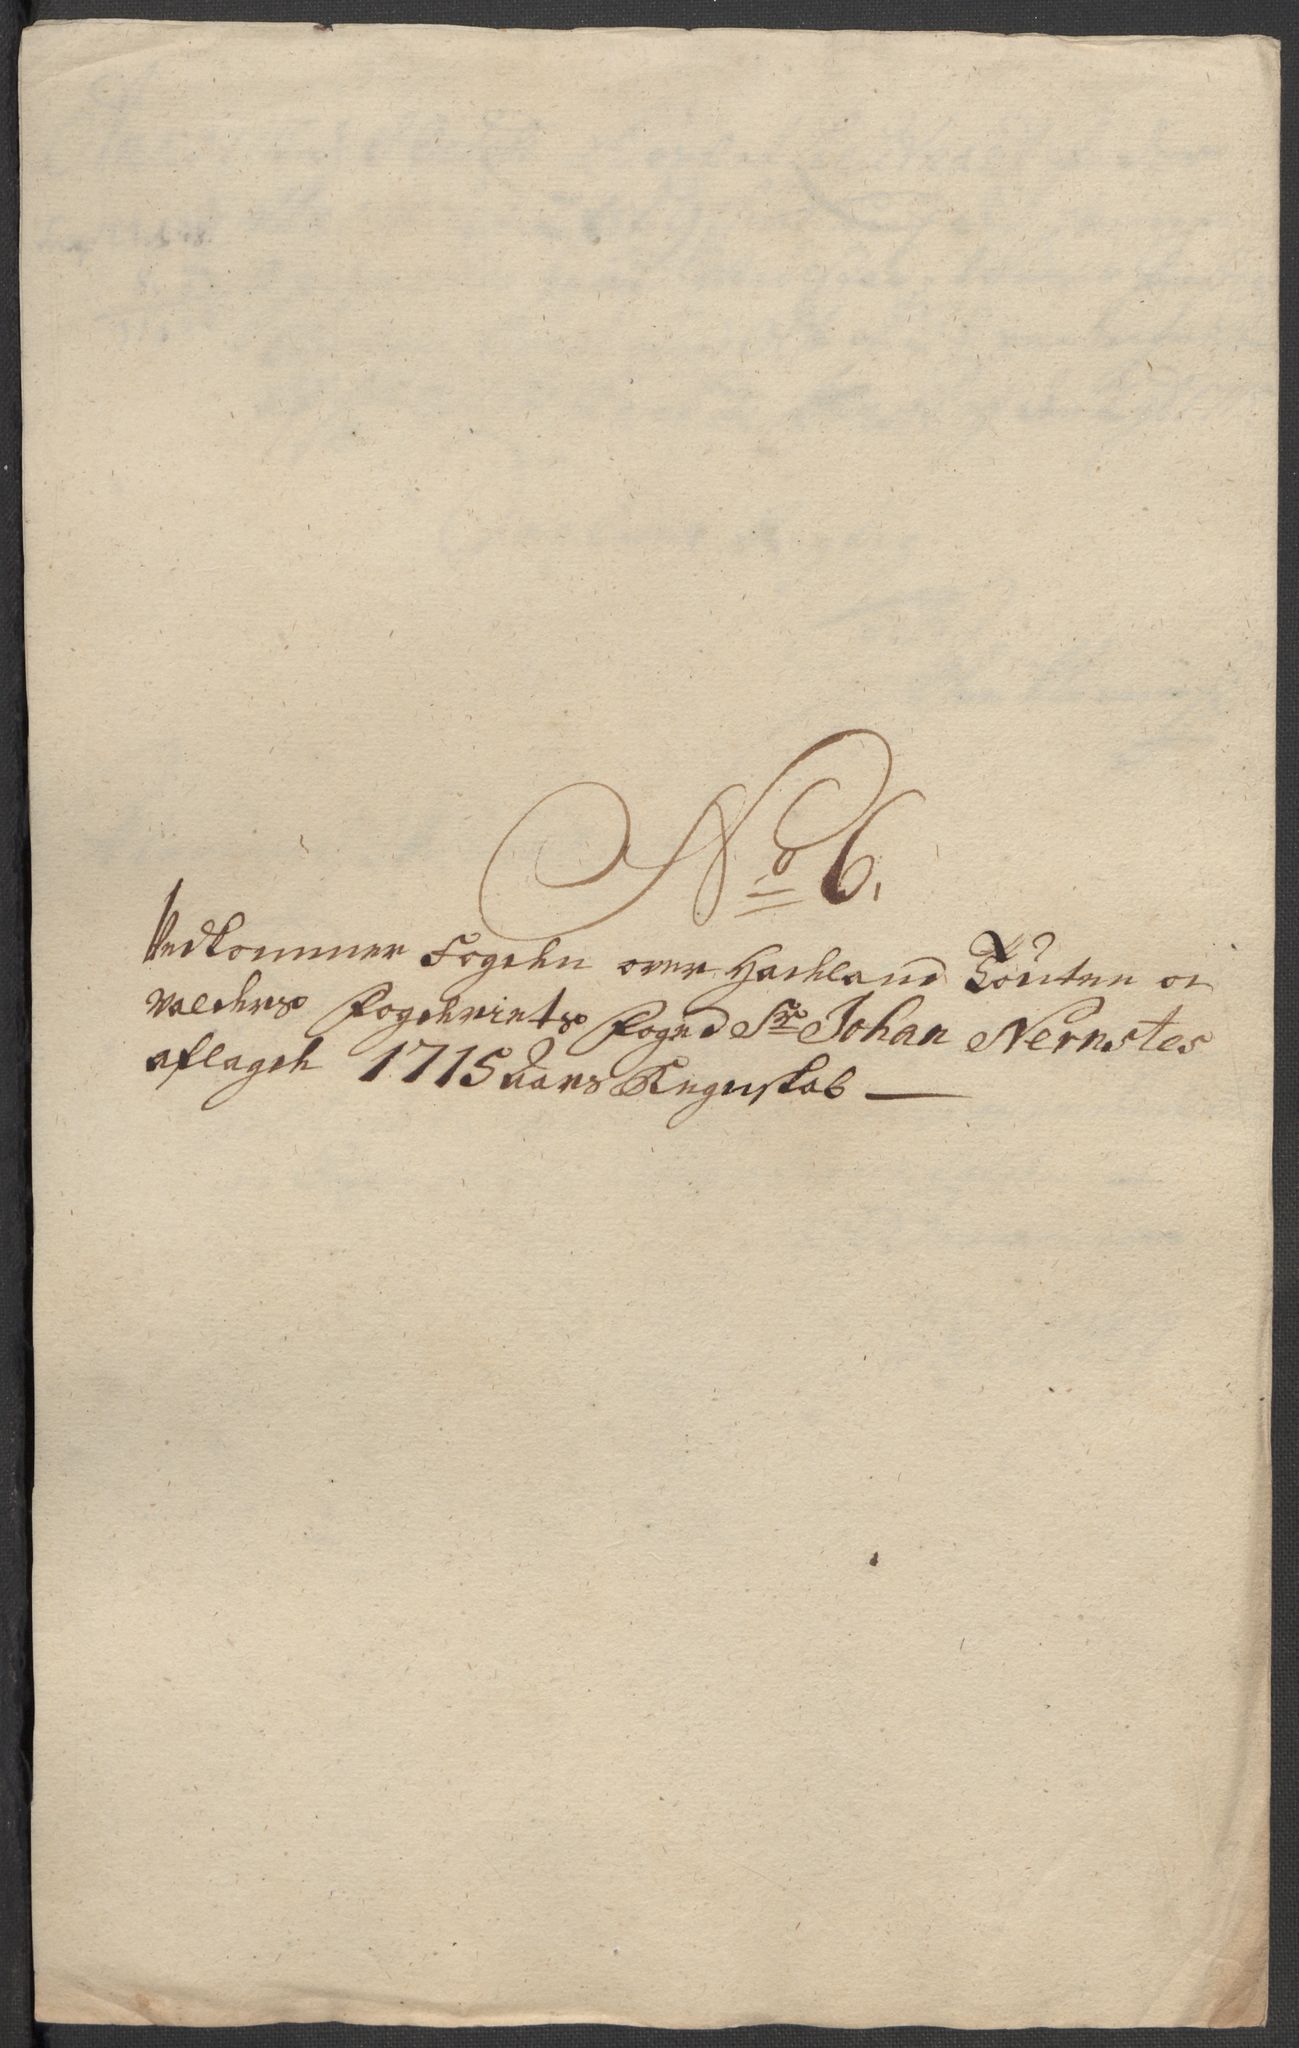 No 6.
Vedkommer Fogden over Hadeland Touten oc
Valders Fogderiets Foged Sr Johan Nernstes
aflagde 1715 Aars Regenskab —